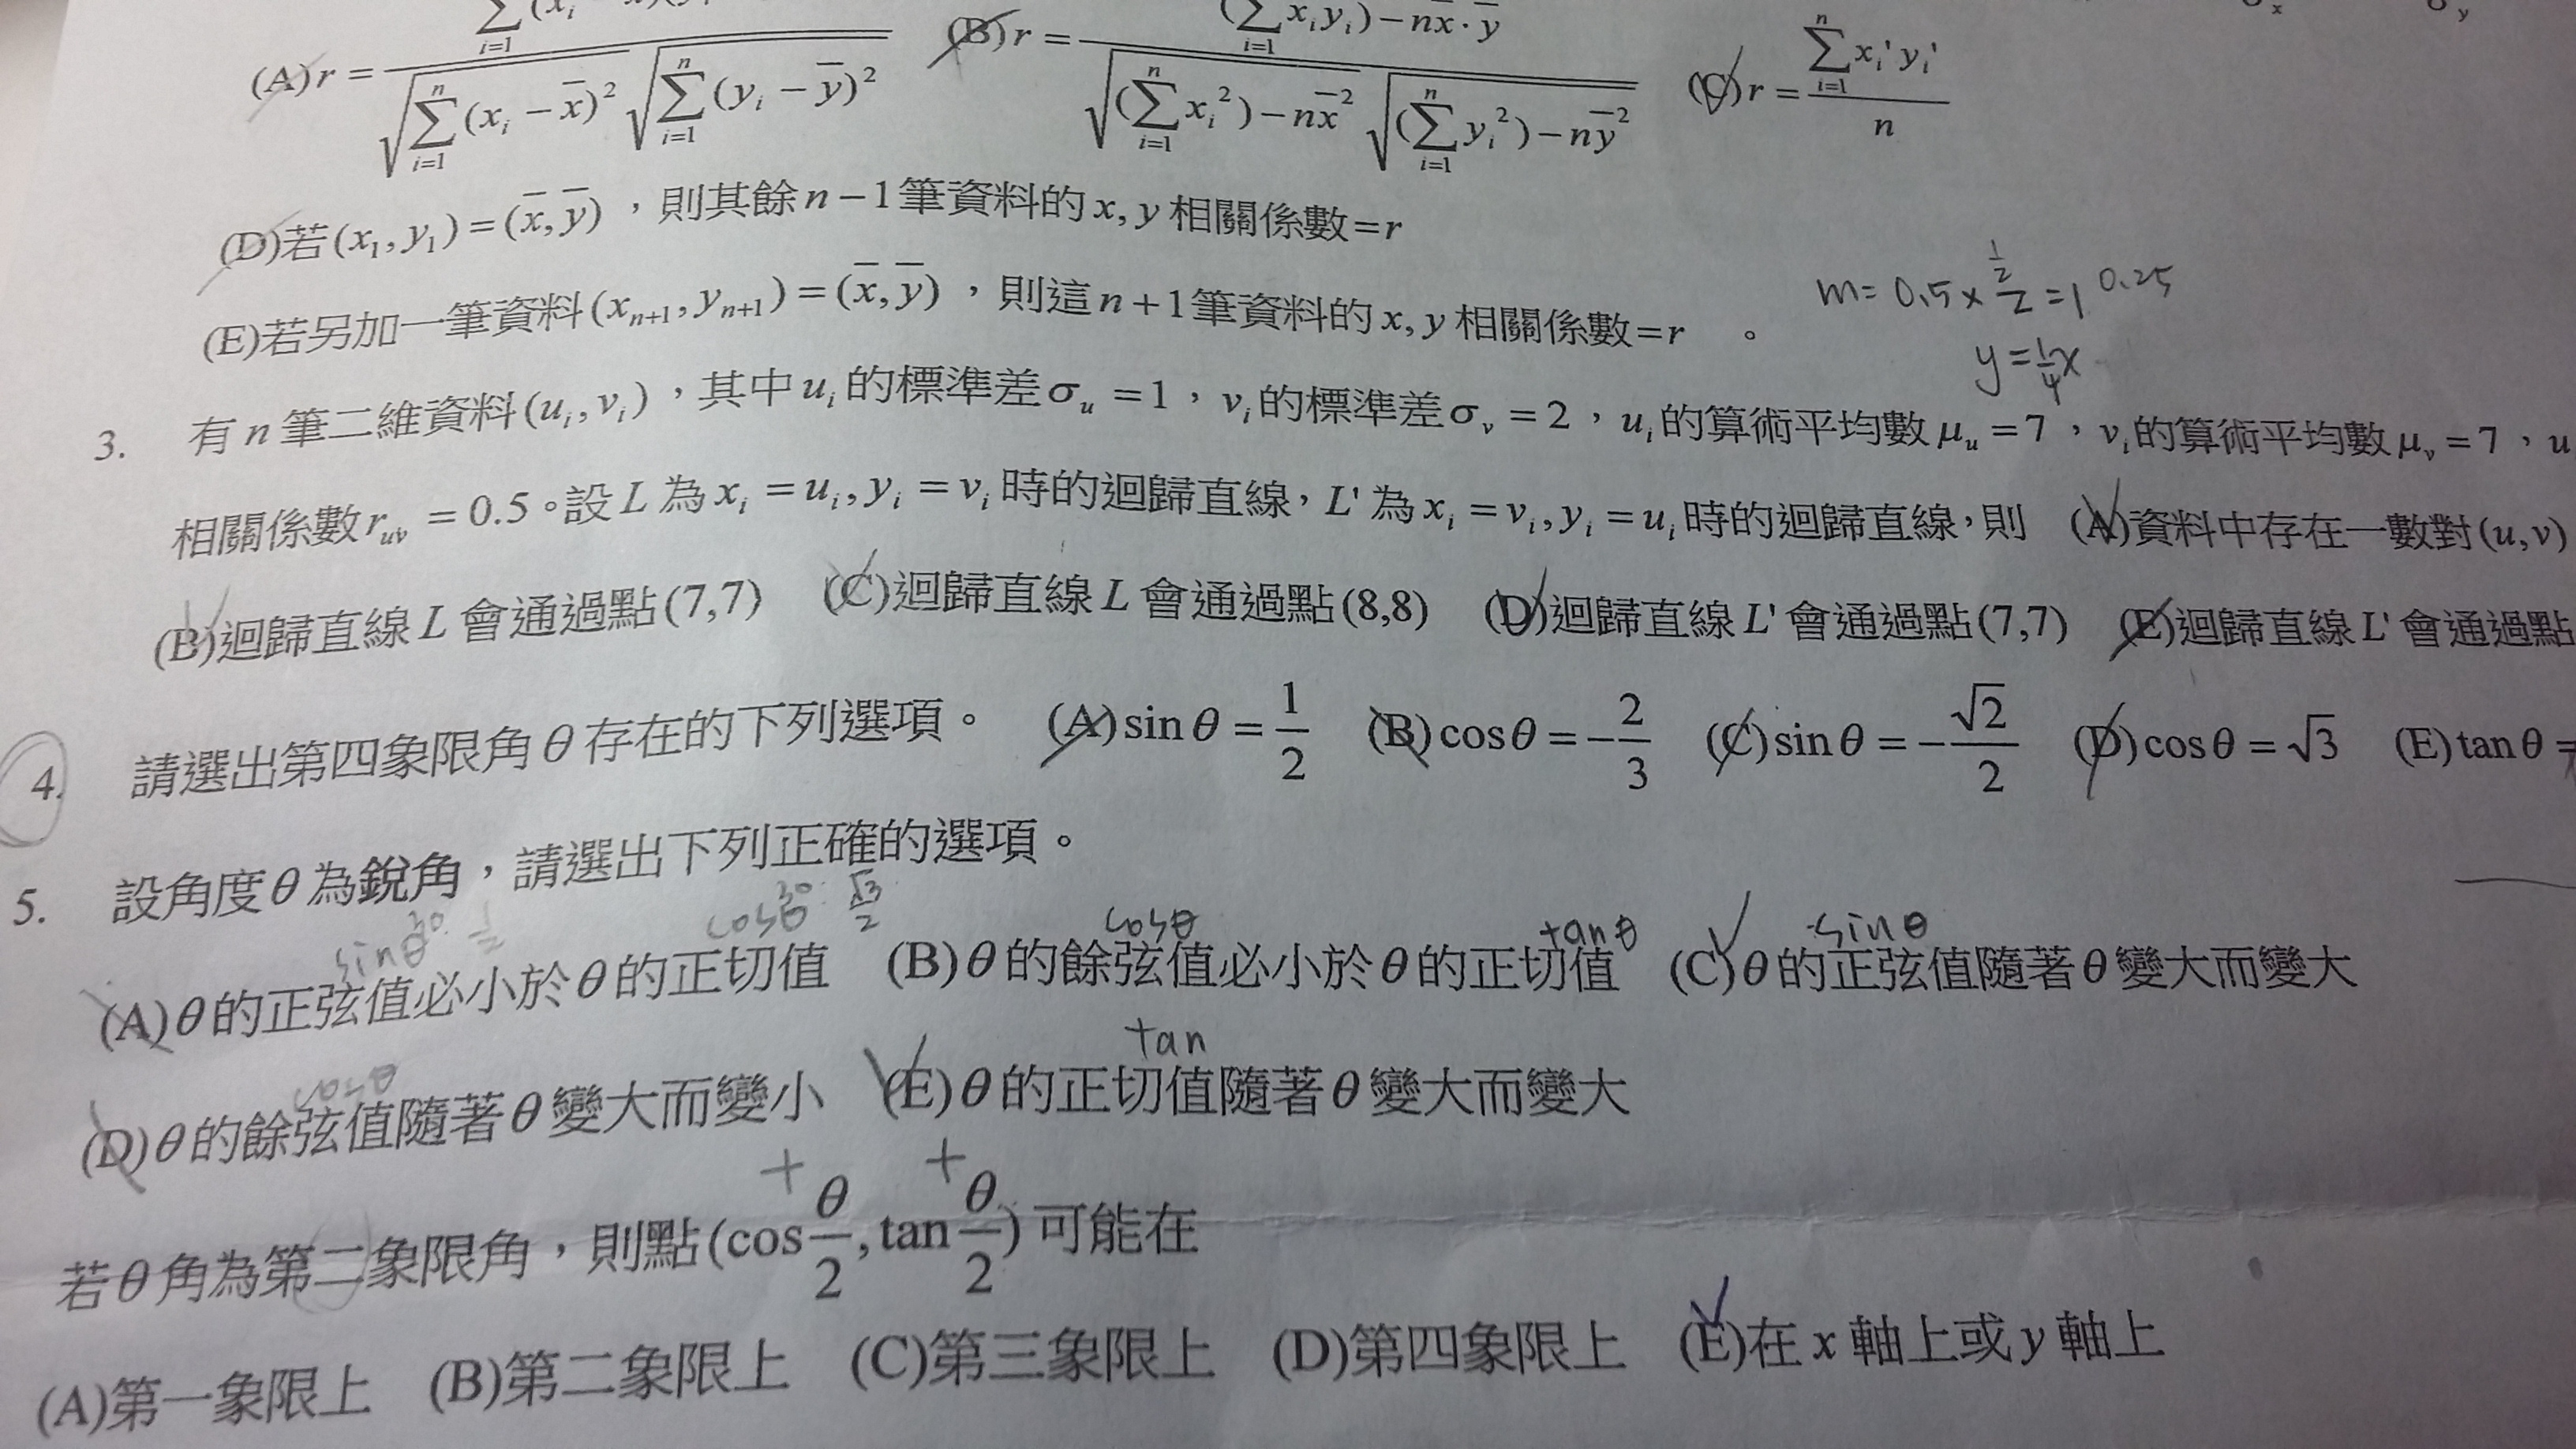 (A) r = / √∑(i=1→n)(x_i − x̄)² √∑(i=1→n)(y_i − ȳ)² (B) r = (∑(i=1) x_i y_i) − n x̄ · ȳ / √(∑(i=1→n) x_i²) − n x̄² √(∑(i=1→n) y_i²) − n ȳ² (C) r = ∑(i=1→n) x_i' y_i' / n
(D)若 (x₁, y₁) = (x̄, ȳ) ，則其餘 n − 1 筆資料的 x, y 相關係數 = r
(E)若另加一筆資料 (x_{n+1}, y_{n+1}) = (x̄, ȳ) ，則這 n + 1 筆資料的 x, y 相關係數 = r 。
m = 0.5 × ½/2 = 1 0.25
y = ¼x
3. 有 n 筆二維資料 (u_i, v_i) ，其中 u_i 的標準差 σ_u = 1 ，v_i 的標準差 σ_v = 2 ，u_i 的算術平均數 μ_u = 7 ，v_i 的算術平均數 μ_v = 7 ，u
相關係數 r_uv = 0.5 。設 L 為 x_i = u_i , y_i = v_i 時的迴歸直線，L' 為 x_i = v_i , y_i = u_i 時的迴歸直線，則 (A)資料中存在一數對 (u,v)
(B)迴歸直線 L 會通過點 (7,7) (C)迴歸直線 L 會通過點 (8,8) (D)迴歸直線 L' 會通過點 (7,7) (E)迴歸直線 L' 會通過點
4. 請選出第四象限角 θ 存在的下列選項。 (A) sin θ = 1/2 (B) cos θ = −2/3 (C) sin θ = −√2/2 (D) cos θ = √3 (E) tan θ =
5. 設角度 θ 為銳角，請選出下列正確的選項。
sinθ 30° ½ cosθ 30° √3/2 cosθ tanθ sinθ
(A) θ 的正弦值必小於 θ 的正切值 (B) θ 的餘弦值必小於 θ 的正切值 (C) θ 的正弦值隨著 θ 變大而變大
cosθ tan
(D) θ 的餘弦值隨著 θ 變大而變小 (E) θ 的正切值隨著 θ 變大而變大
+ +
若 θ 角為第二象限角，則點 (cos θ/2 , tan θ/2) 可能在
(A)第一象限上 (B)第二象限上 (C)第三象限上 (D)第四象限上 (E)在 x 軸上或 y 軸上